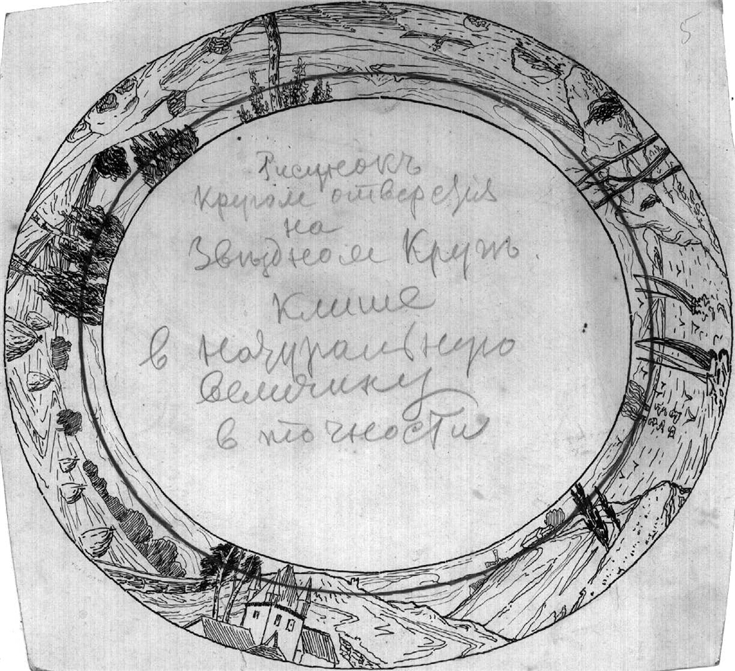 Рисунокъ
Кругом отверстия
на
Звѣздном Кругѣ.
Клише
в натуральную
величину
в точности
5